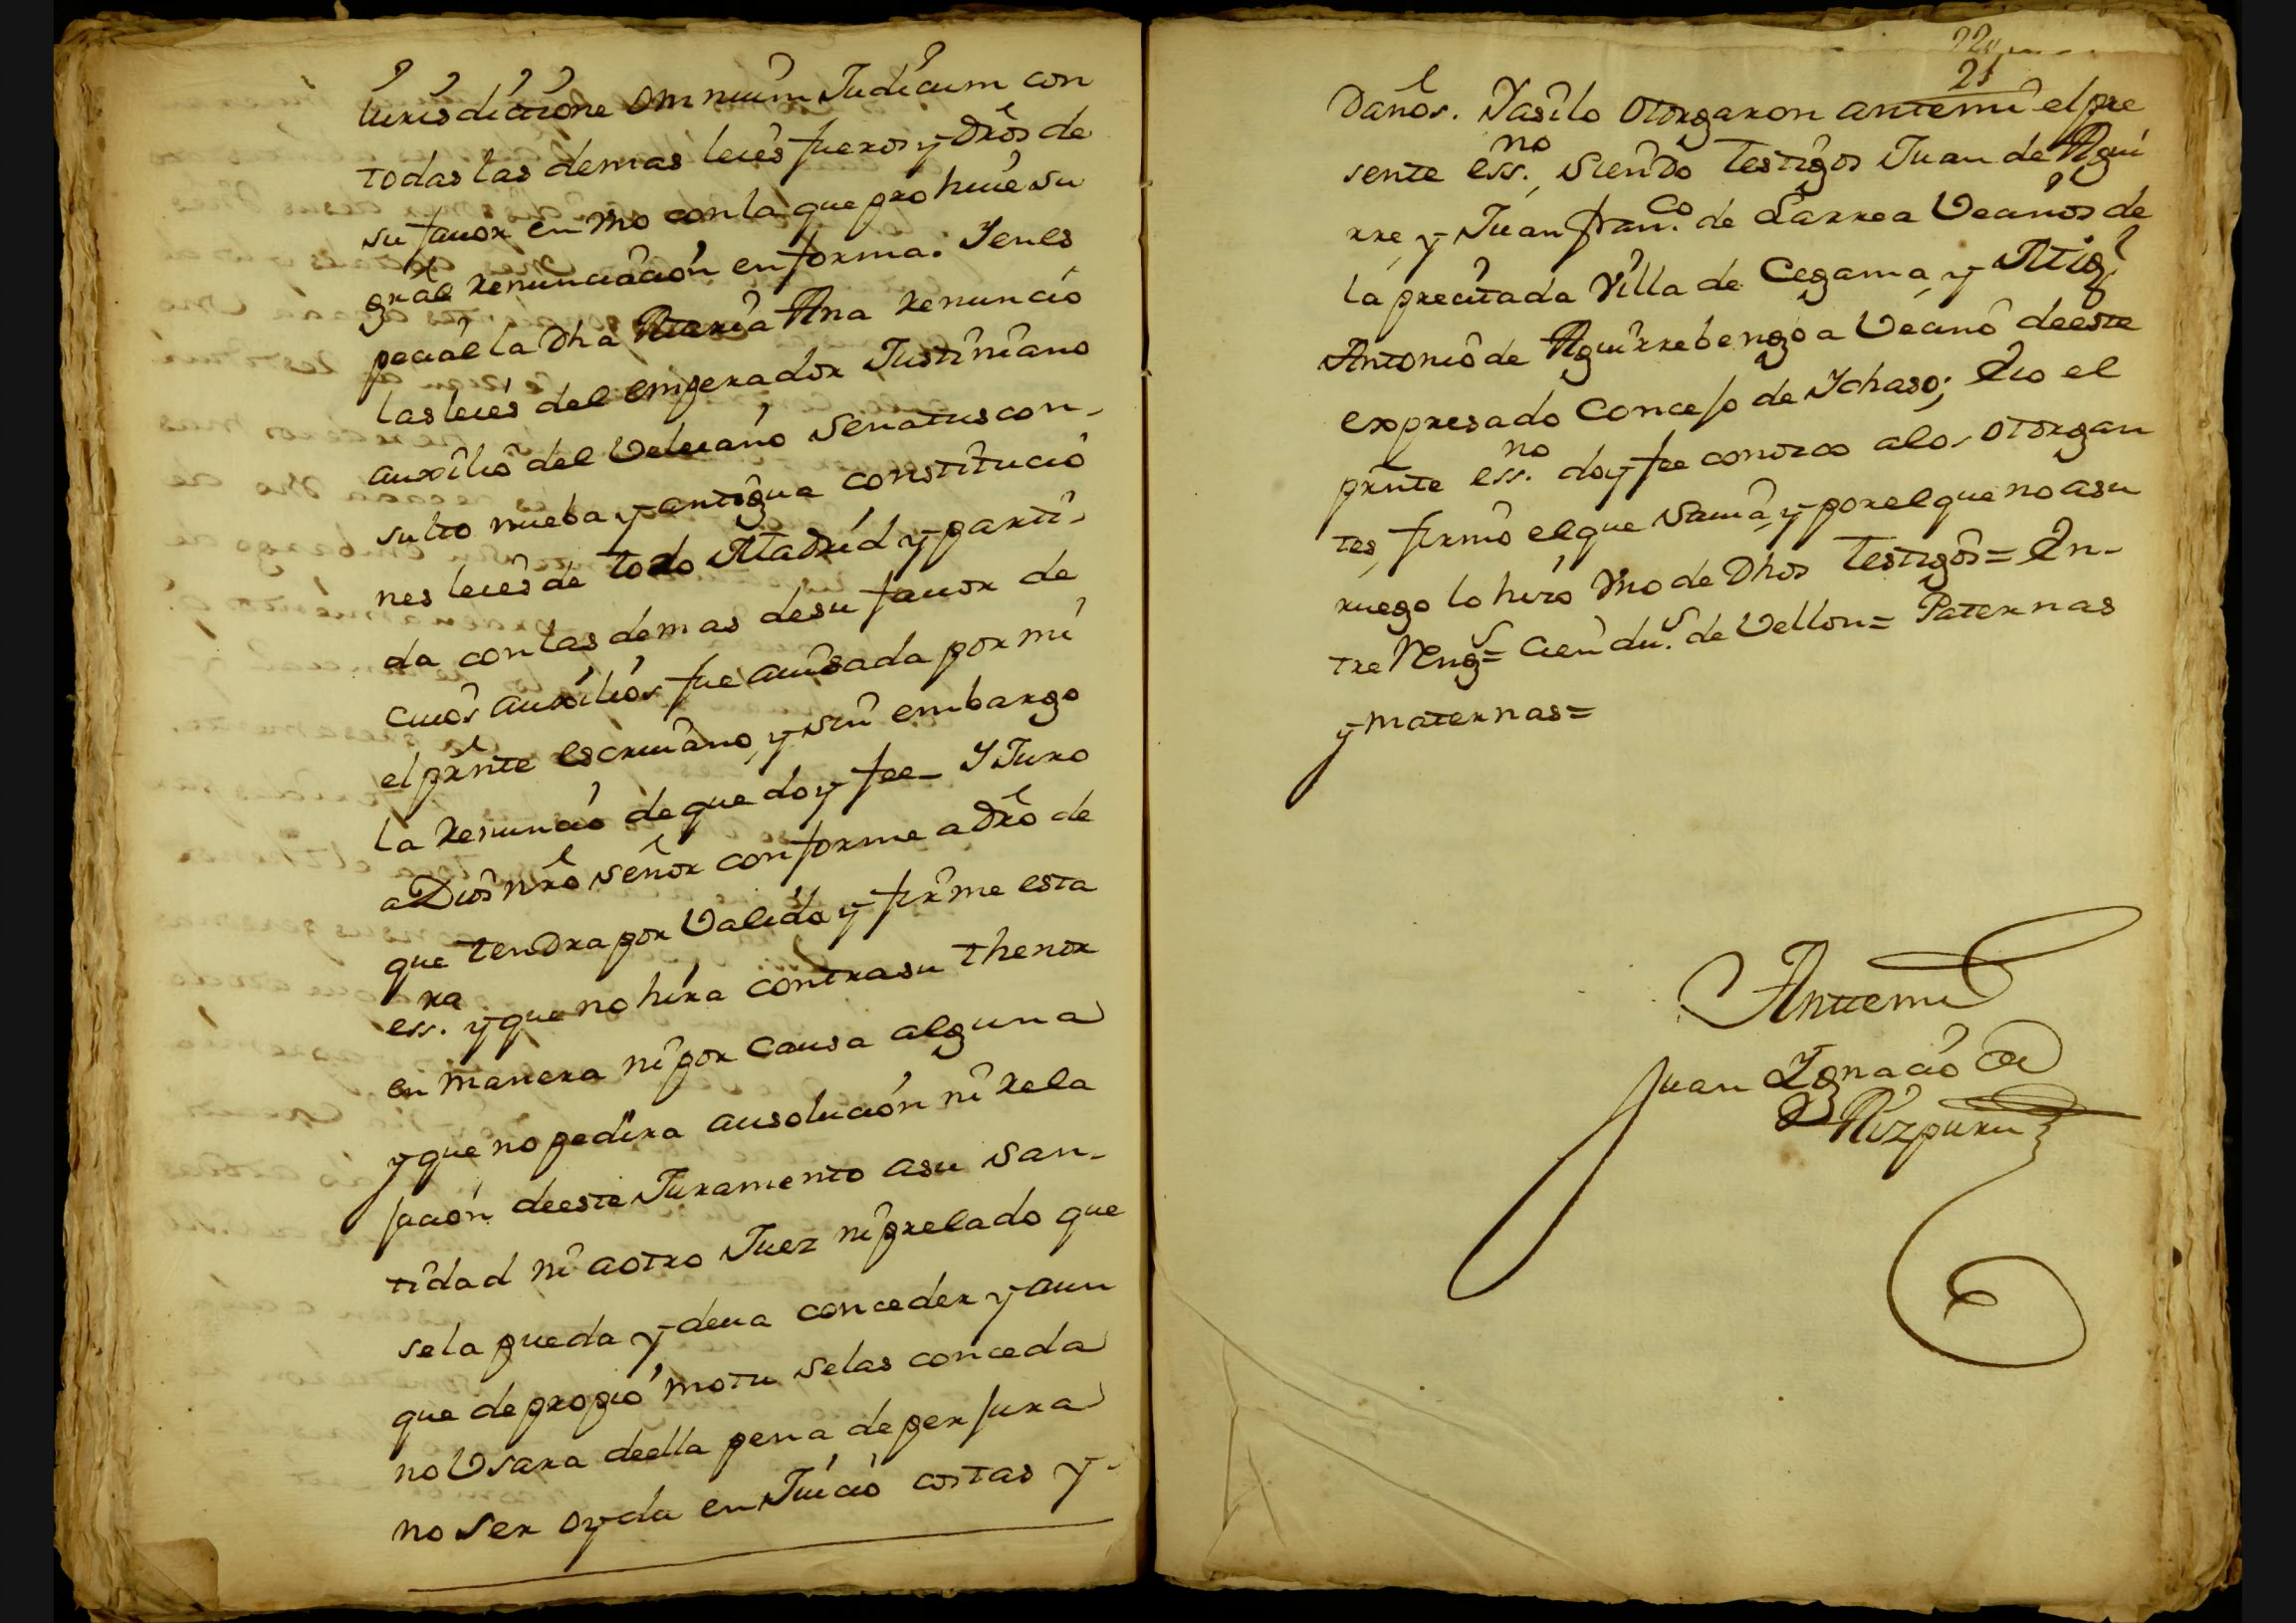 Iurisdicione omnium Iudicum con
todas las demas leies fueros y dr̃os de
su fauor en vno con la que prohiue su
gr̃al renunciacion en forma. Y en es
pecial la dha Maria Ana renuncio
las leies del emperador Justiniano
auxilio del Veleiano Senatus con-
sulto nueba y antigua constitucio
nes leies de todo Madrid y parti-
da con las demas de su fauor de
cuios auxilios fue auisada por mi
el prñte escriuano, y sin embargo
la renuncio de que doy fee_ Y Juro
a Dios nr̃o señor conforme a dr̃o de
que tendra por Valida y firme esta
ess.ra y que no hira contra su thenor
en manera ni por causa alguna
y que no pedira ausolucion ni rela
jacion de este Juramento a su San-
tidad ni a otro Juez ni prelado que
se la pueda y deua conceder y aun
que de propio motu se las conceda
no Vsara de ella pena de perjura
no ser oyda en Juicio costas y
21
Daños. Y asi lo otorgaron ante mi el pre
sente ess.no, siendo testigos Juan de Agui
rre, y Juan fran.co de Larrea Vecinos de
la precitada Villa de Cegama, y Mig.l
Antonio de Aguirrebengoa Vecino de este
expresado Concejo de Ichaso; E io el
prñte ess.no doy fee conozco a los otorgan
tes, firmo el que sauia, y por el que no a su
ruego lo hizo vno de dhos testigos= En-
tre Reng.s= cien du.s de Vellon= Paternas
y maternas=
Ante mi
Juan Ignacio de
Aizpuru